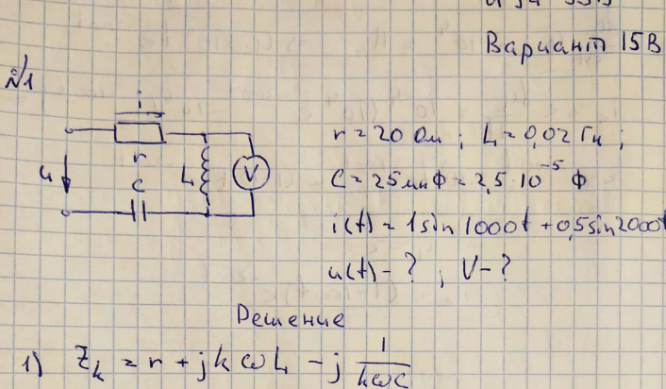 Вариант 15В
№1
i
r
C
u
L
V
r = 20 Ом ; L = 0,02 Гн ;
C = 25 мкФ = 2,5·10⁻⁵ Ф
i(t) = 1 sin 1000t + 0,5 sin 2000t
u(t) - ? , V - ?
Решение
1) Z_k = r + jkωL - j 1/(kωC)